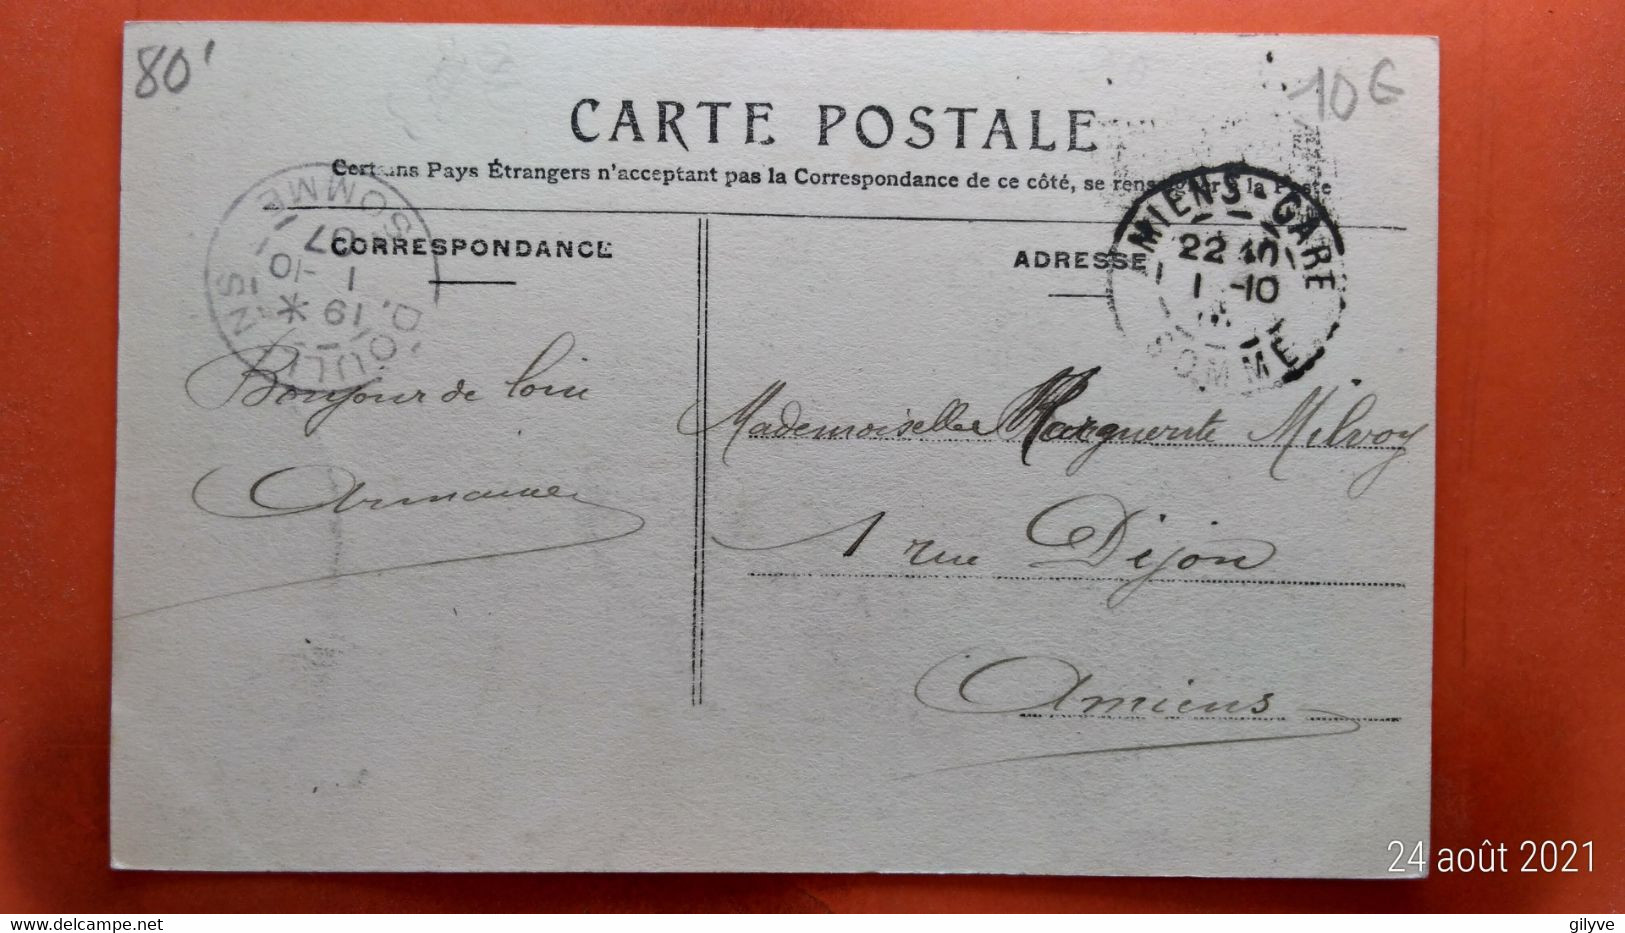 80'
10€
CARTE POSTALE
Certains Pays Étrangers n'acceptant pas la Correspondance de ce côté, se renseigner à la Poste
CORRESPONDANCE
ADRESSE
DOULLENS
SOMME
19 *
1 -10
07
AMIENS-GARE
22 10
1 -10
SOMME
Bonjour de loin
Mademoiselle Marguerite Milvoy
1 rue Dijon
Amiens
24 août 2021
gilyve